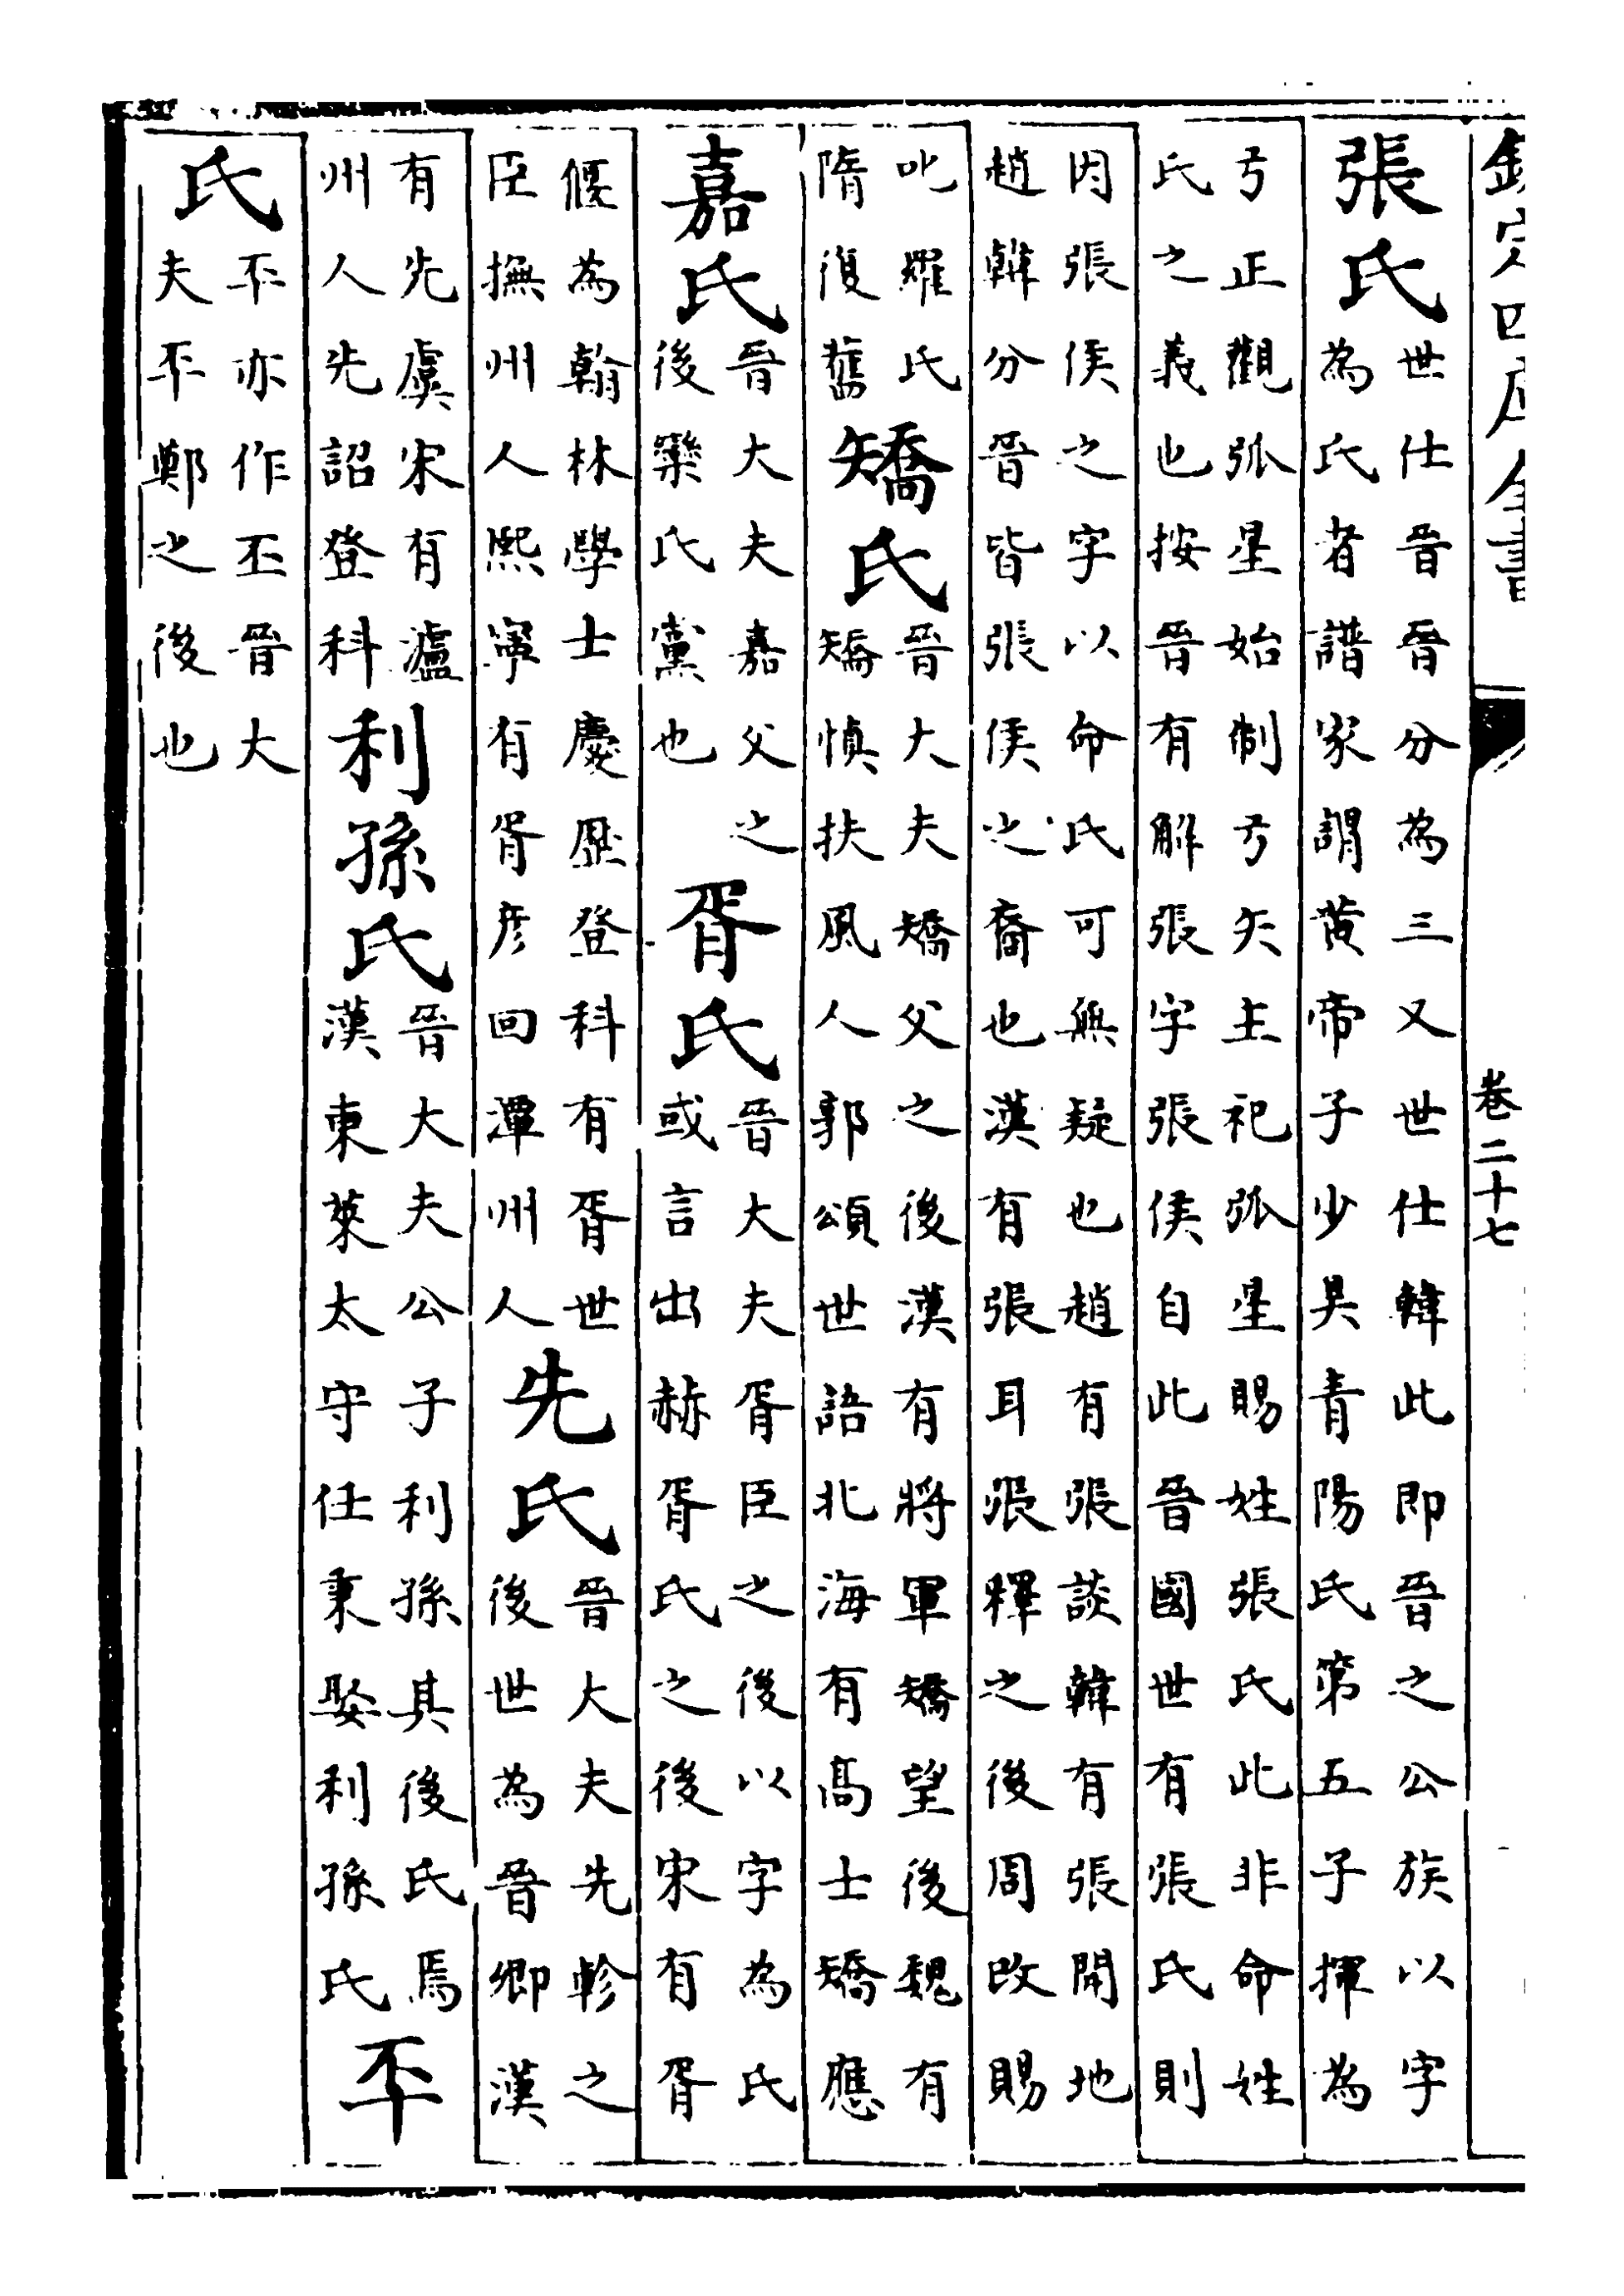 欽定四庫全書
卷二十七
張氏
世仕晉晉分為三又世仕韓此即晉之公族以字
為氏者譜家謂黄帝子少昊青陽氏第五子揮為
弓正觀弧星始制弓矢主祀弧星賜姓張氏此非命姓
氏之義也按晉有解張字張侯自此晉國世有張氏則
因張侯之字以命氏可無疑也趙有張談韓有張開地
趙韓分晉皆張侯之裔也漢有張耳張釋之後周改賜
叱耀氏
隋復舊
矯氏
晉大夫矯父之後漢有將軍矯望後魏有
矯慎扶風人郭頌世語北海有高士矯應
嘉氏
晉大夫嘉父之
後欒氏黨也
胥氏
晉大夫胥臣之後以字為氏
或言出赫胥氏之後宋有胥
偃為翰林學士慶歴登科有胥世
臣撫州人熙寧有胥彦回潭州人
先氏
晉大夫先軫之
後世為晉卿漢
有先虞宋有瀘
州人先詔登科
利孫氏
晉大夫公子利孫其後氏焉
漢東萊太守任秉娶利孫氏
㔻
氏
㔻亦作丕晉大
夫㔻鄭之後也